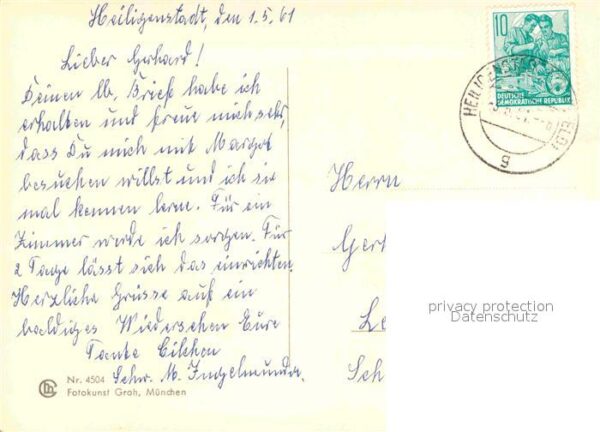 Heiligenstadt, den 1.5.61
Lieber Gerhard!
Deinen lb. Brief habe ich
erhalten und freue mich sehr,
dass Du mich mit Margot
besuchen willst und ich sie
mal kennen lerne. Für ein
Zimmer werde ich sorgen. Für
2 Tage lässt sich das einrichten.
Herzliche Grüsse auf ein
baldiges Wiedersehen Eure
Tante
Schw. M.
Nr. 4504
Fotokunst Groh, München
10
DEUTSCHE
DEMOKRATISCHE REPUBLIK
HEILIGENSTADT
g
Herrn
Ger
Le
Sch
privacy protection
Datenschutz